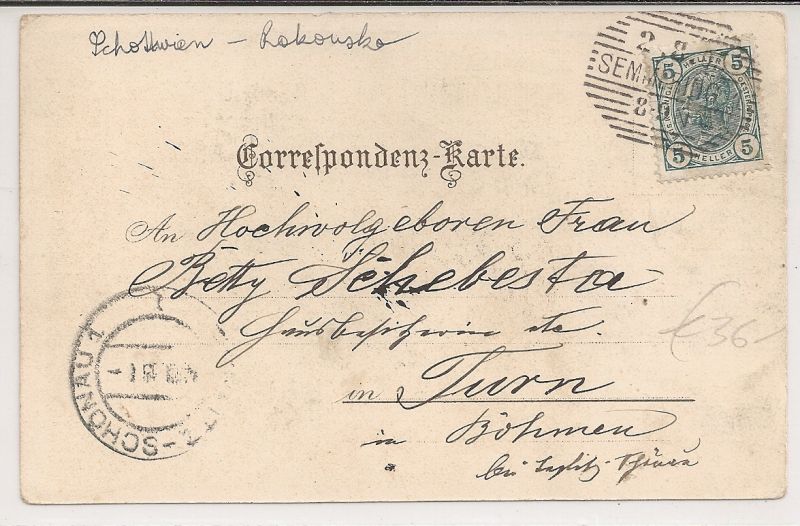 Schottwien – Rakousko
2 8
SEMMERING
5 HELLER 5
5 HELLER 5
Correſpondenz-Karte.
An Hochwolgeboren Frau
Betty Schebesta
Hausbesitzerin etc.
€36-
in Turn
in Böhmen
bei Teplitz-Schönau
TZ-SCHÖNAU 1